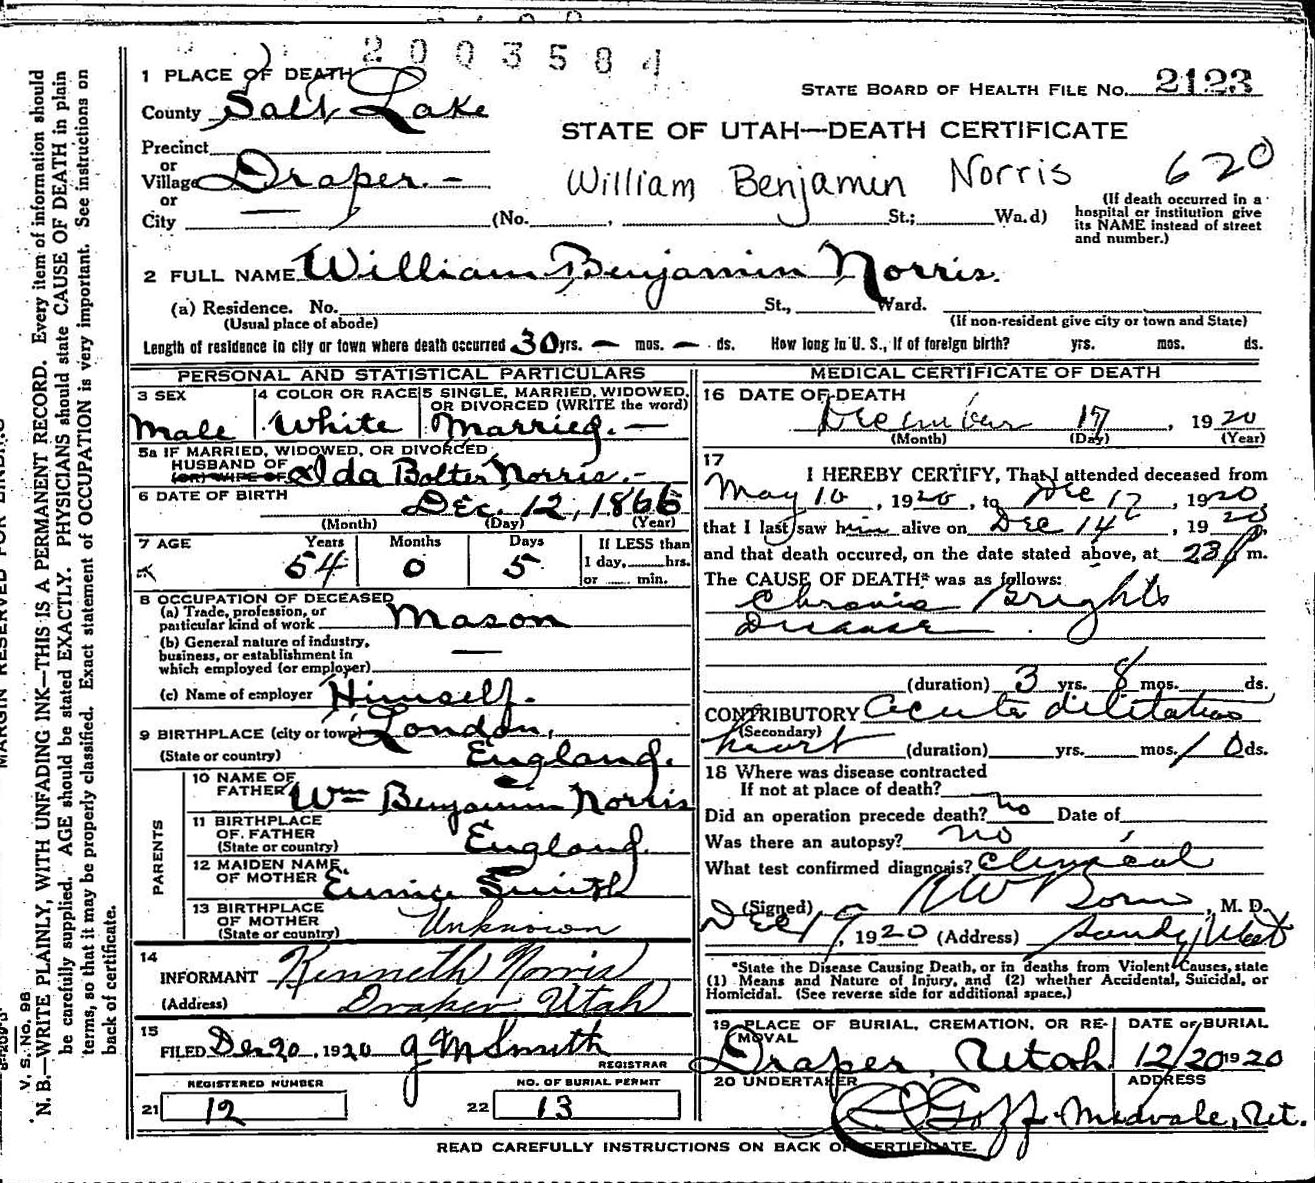 2003584
1 PLACE OF DEATH
County Salt Lake
STATE BOARD OF HEALTH FILE No. 2123
STATE OF UTAH—DEATH CERTIFICATE
Precinct
or
Village Draper. –
or
City
William Benjamin Norris 620
(No. , St.; Wa.d)
(If death occurred in a hospital or institution give its NAME instead of street and number.)
2 FULL NAME William Benjamin Norris.
(a) Residence. No. St., Ward.
(Usual place of abode) (If non-resident give city or town and State)
Length of residence in city or town where death occurred 30 yrs. – mos. – ds. How long in U. S., if of foreign birth? yrs. mos. ds.
PERSONAL AND STATISTICAL PARTICULARS
3 SEX
Male
4 COLOR OR RACE
White
5 SINGLE, MARRIED, WIDOWED,
OR DIVORCED (WRITE the word)
Married. –
5a IF MARRIED, WIDOWED, OR DIVORCED
HUSBAND OF
(OR) WIFE OF Ida Bolter Norris. –
6 DATE OF BIRTH Dec. 12, 1866
(Month) (Day) (Year)
7 AGE Years Months Days If LESS than
54 0 5 1 day, hrs.
or min.
8 OCCUPATION OF DECEASED
(a) Trade, profession, or
particular kind of work Mason
(b) General nature of industry,
business, or establishment in
which employed (or employer) —
(c) Name of employer Himself.
9 BIRTHPLACE (city or town) London,
(State or country) England.
PARENTS
10 NAME OF
FATHER Wm Benjamin Norris
11 BIRTHPLACE
OF FATHER
(State or country) England.
12 MAIDEN NAME
OF MOTHER Eunice Smith
13 BIRTHPLACE
OF MOTHER
(State or country) Unknown
14
INFORMANT Kenneth Norris
(Address) Draper Utah
15
FILED Dec 20, 1920 J M Smith
REGISTRAR
REGISTERED NUMBER
21 12
NO. OF BURIAL PERMIT
22 13
MEDICAL CERTIFICATE OF DEATH
16 DATE OF DEATH
December 17, 1920
(Month) (Day) (Year)
17
I HEREBY CERTIFY, That I attended deceased from
May 10, 1920, to Dec 17, 1920,
that I last saw him alive on Dec 14, 1920
and that death occured, on the date stated above, at m.
The CAUSE OF DEATH* was as follows:
Chronic Brights
Disease
(duration) 3 yrs. 8 mos. ds.
CONTRIBUTORY Acute dilitation
(Secondary)
heart (duration) yrs. mos. 10 ds.
18 Where was disease contracted
If not at place of death?
Did an operation precede death? no Date of
Was there an autopsy? no
What test confirmed diagnosis? Clinical
(Signed) , M. D.
Dec 19, 1920 (Address) Sandy Utah
*State the Disease Causing Death, or in deaths from Violent Causes, state
(1) Means and Nature of Injury, and (2) whether Accidental, Suicidal, or
Homicidal. (See reverse side for additional space.)
19 PLACE OF BURIAL, CREMATION, OR RE-
MOVAL
Draper, Utah
DATE OF BURIAL
12/20 1920
20 UNDERTAKER
Goff
ADDRESS
Midvale, Ut.
READ CAREFULLY INSTRUCTIONS ON BACK OF CERTIFICATE.
V. S. No. 98
N. B.—WRITE PLAINLY, WITH UNFADING INK—THIS IS A PERMANENT RECORD. Every item of information should
be carefully supplied. AGE should be stated EXACTLY. PHYSICIANS should state CAUSE OF DEATH in plain
terms, so that it may be properly classified. Exact statement of OCCUPATION is very important. See instructions on
back of certificate.